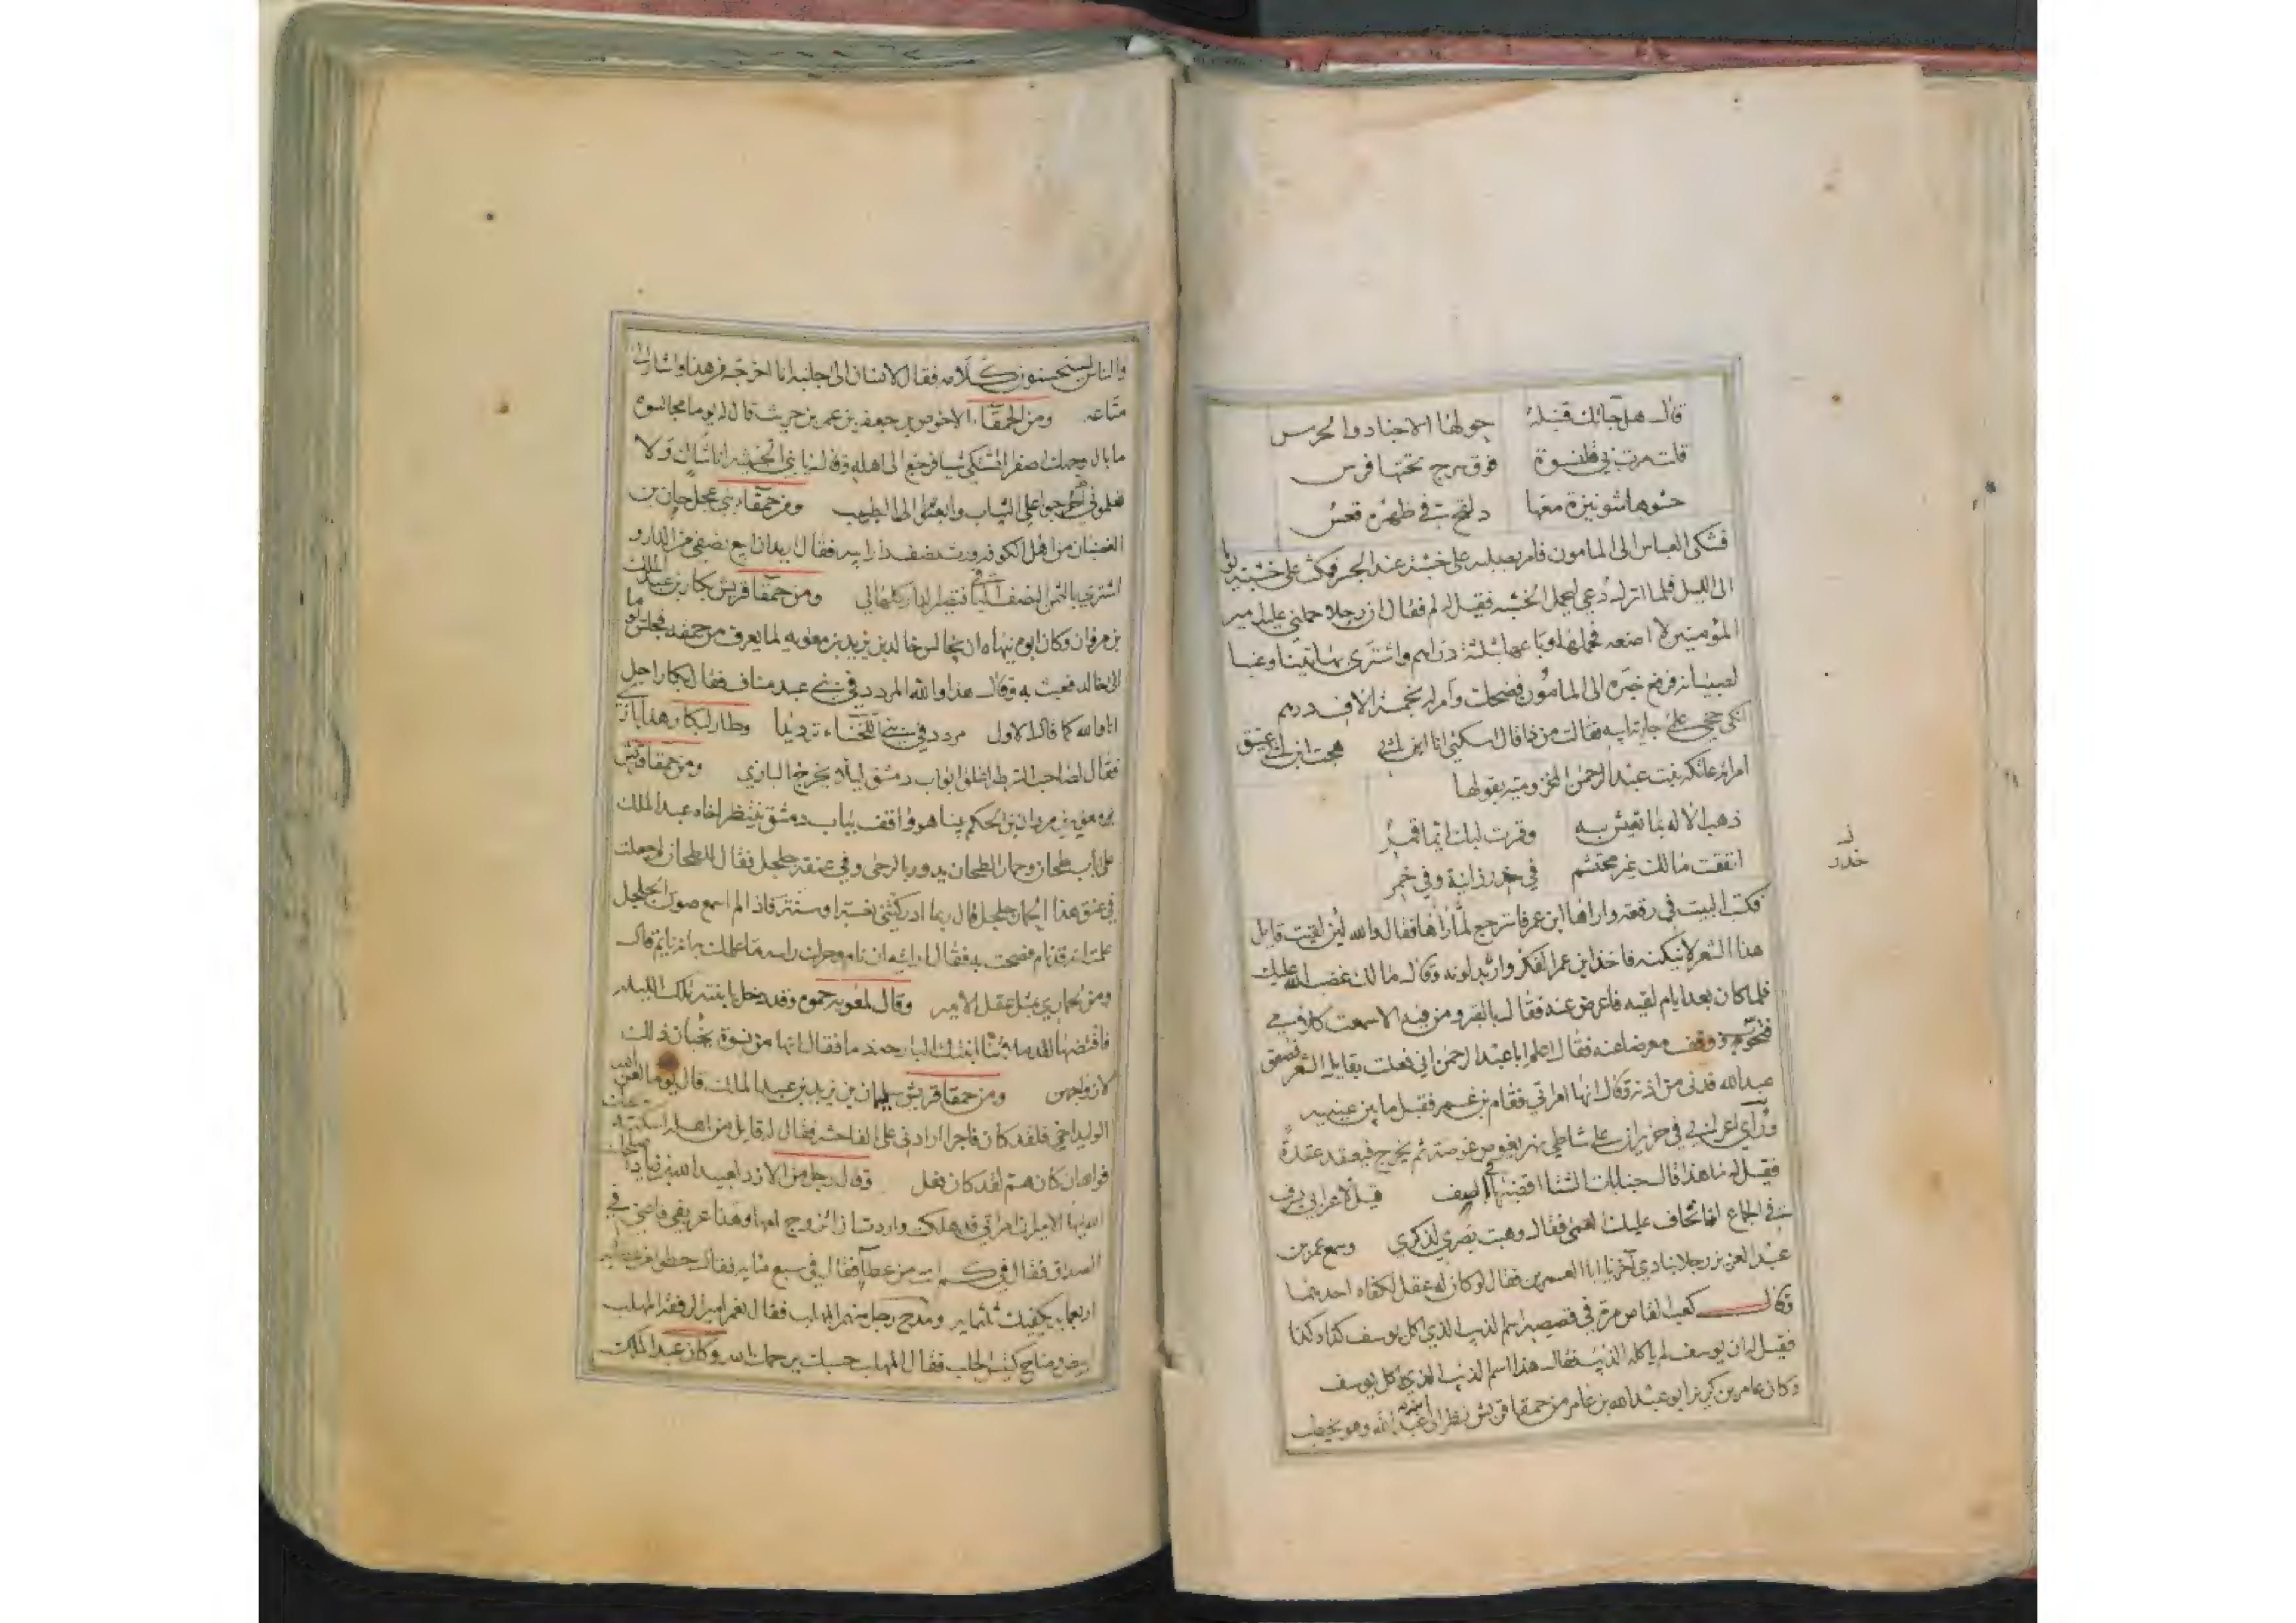 قال هل جائك قنبلة حولها الاجناد والحرس
قلت مرت بي قلنسوة فوق سرج تحتها فرس
حشوها شونيزة معها
فشكى العباس الى المامون فامر بصلبه على خشبة عند الجسر فمكث على خشبته
الى الليل فلما انزله دعي ليحمل الخشبه فقيل له لم فقال ان رجلا حملني عليه امير
المؤمنين لا اضعه فحملها وباعها بثلثة دراهم واشترى بها تينا وعنبا
لصبيانه فرفع خبره الى المامون فضحك وامر له بخمسة الاف درهم
جارية ابيه فقالت من ذا فقال اسكتي انا ابي هجت ابن ابي عتيق
امراته عاتكه بنت عبد الرحمن المخزوميه بقولها
ذهب الاله بما تعيش به وقمرت لبك ايما قمر
انفقت مالك غير محتشم في خدر زانية وفي خمر
خدر
فكتب البيت في رقعة واراها ابن عمر فاسترجع لما راها فقال والله لئن لقيت قايل
هذا الشعر لانيكنه فاخذ ابن عمر افكل واربد لونه وقال مالك غضب الله عليك
فلما كان بعد ايام لقيه فاعرض عنه فقال بالقبر ومن فيه الا سمعت كلامي
ووقف معرضا عنه فقال اعلم ابا عبد الرحمن اني فعلت بقايل الشعر فصعق
عبد الله فدنى من اذنه وقال انها امراتي فقام بن عمر فقبل ما بين عينيه
وراي اعرابي في حزيران على شاطي نهر يغوص غوصة ثم يخرج فيعقد عقدة
فقيل له ما هذا قال جنابات الشتا اقضيها في الصيف قيل لاعرابي يسرف
في الجماع اما تخاف عليك العمى فقال وهبت بصري لذكري وسمع عمر بن
عبد العزيز رجلا ينادي آخر يا ابا العمرين فقال لو كان له عقل لكفاه احدهما
وقال كعب القاص مرة في قصصه اسم الذيب الذي اكل يوسف كذا وكذا
فقيل له ان يوسف لم ياكله الذيب فقال هذا اسم الذيب الذي لم ياكل يوسف
وكان عامر بن كريز ابو عبد الله بن عامر من حمقا قريش نظر الى ابنه عبد الله وهو يخطب
والناس يستحسنون كلامه فقال لانسان الى جانبه انا اخرجته من هذا واشار الى
متاعه ومن الحمقا الاحوص بن جعفر بن عمر بن حريث قال له يوما مجالسوه
ما بال وجهك اصفر اتشتكي شيا فرجع الى اهله وقال يا بني الخبيثه انا شاك ولا
تعلموني اطرحوا علي الثياب وابعثوا الى الطبيب ومن حمقا بني عجل حسان بن
الغضبان من اهل الكوفه ورث نصف دار ابيه فقال اريد ان ابيع نصفي من الدار و
اشترى بالثمن النصف الباقي فتصير الدار كلها لي ومن حمقا قريش بكار بن عبد الملك
بن مروان وكان ابوه ينهاه ان يجالس خالد بن يزيد بن معويه لما يعرف من حمقه فجلس يوما
الى خالد فعبث به وقال هذا والله المردد في بني عبد مناف فقال بكار اجل
انا والله كما قال الاول مردد في بني اللخناء ترديدا وطار لبكار هذا باز
فقال لصاحب الشرطة اغلق ابواب دمشق ليلا يخرج البازي ومن حمقا قريش
معوية بن مروان بن الحكم بينا هو واقف بباب دمشق ينتظر اخاه عبد الملك
على باب طحان وحمار الطحان يدور بالرحى وفي عنقه جلجل فقال للطحان لم جعلت
في عنق هذا الحمار جلجل قال ربما ادركتني نعسة او سنة فاذا لم اسمع صوت الجلجل
علمت انه قد نام فصحت به فقال ارايت ان نام وحرك راسه ما علمك به انه نايم قال
ومن لحماري بمثل عقل الامير وقال لمعويه حموه وقد دخل بابنته تلك الليله
فافتضها لقد ملاتنا ابنتك البارحه دما فقال انها من نسوة يخبان ذلك
لازواجهن ومن حمقا قريش سليمان بن يزيد بن عبد الملك قال يوما لعن الله
الوليد اخي فلقد كان فاجرا ارادني على الفاحشه فقال له قايل من اهله اسكت
فوالله ان كان هم لقد كان فعل وقال رجل من الازد لعبيد الله بن زياد
ايها الامير ان امراتي قد هلكت واردت ان اتزوج امها وهذا عريفي فاعني في
الصداق فقال في كم انت من عطا فقال في سبع مايه فقال حطوا من عطايه
اربعمايه يكفيك ثلثمايه ومدح رجل منهم المهلب فقال نعم امير الرفقه المهلب
ابيض وضاح كتيس الحلب فقال المهلب حسبك يرحمك الله وكان عبد الملك